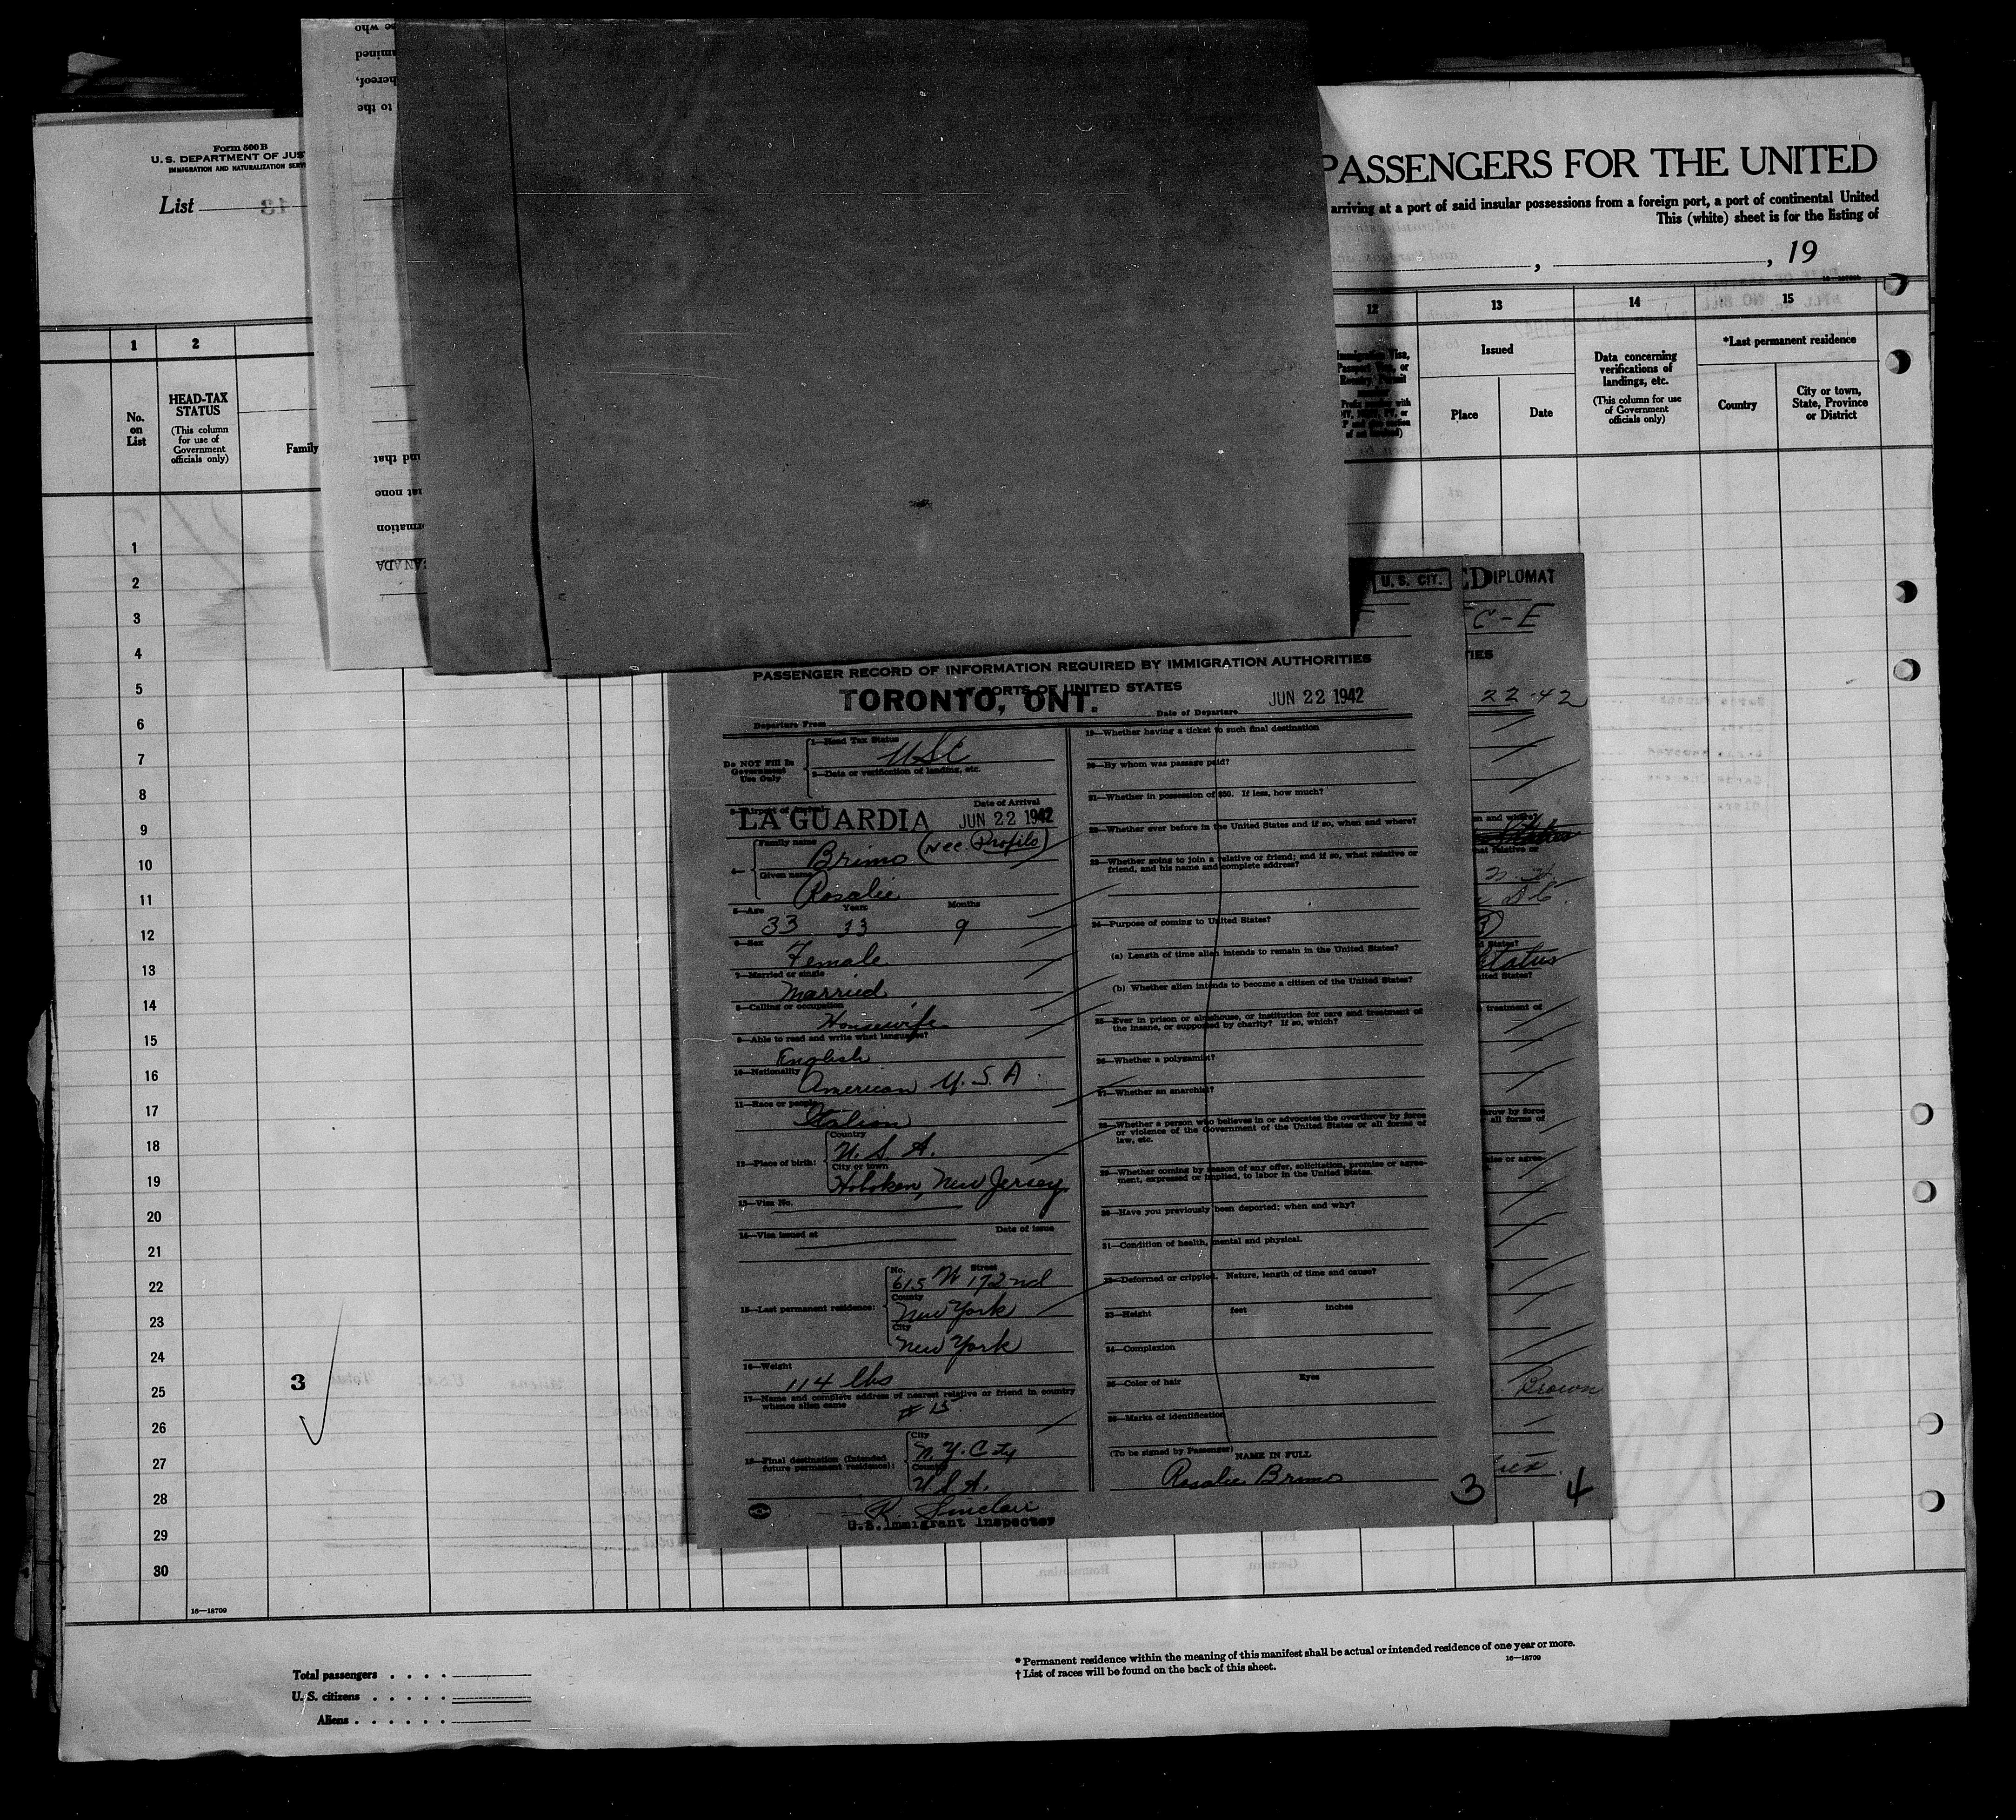 Form 500 B
U. S. DEPARTMENT OF JUS
IMMIGRATION AND NATURALIZATION SERV
List
13
PASSENGERS FOR THE UNITED
arriving at a port of said insular possessions from a foreign port, a port of continental United
This (white) sheet is for the listing of
, , 19
1 2 12 13 14 15
No. on List
HEAD-TAX STATUS
(This column for use of Government officials only)
Family
Immigration Visa, Passport Visa, or Reentry Permit
Issued
Place Date
Data concerning verifications of landings, etc.
(This column for use of Government officials only)
*Last permanent residence
Country
City or town, State, Province or District
1
2
3
4
5
6
7
8
9
10
11
12
13
14
15
16
17
18
19
20
21
22
23
24
25
26
27
28
29
30
3
16—18709
U. S. CIT.
DIPLOMAT
C-E
22-42
PASSENGER RECORD OF INFORMATION REQUIRED BY IMMIGRATION AUTHORITIES
PORTS OF UNITED STATES
TORONTO, ONT.
JUN 22 1942
Departure From
Date of Departure
Do NOT Fill In Government Use Only
1—Head Tax Status
USC
2—Data or verification of landing, etc.
3—Airport of Arrival
Date of Arrival
LA GUARDIA JUN 22 1942
4—
Family name
Brimo (nee Profilo)
Given name
Rosalie
5—Age Years Months
33 33 9
6—Sex
Female
7—Married or single
Married
8—Calling or occupation
Housewife
9—Able to read and write what languages?
English
10—Nationality
American U.S.A.
11—Race or people
Italian
12—Place of birth:
Country
U.S.A.
City or town
Hoboken, New Jersey
13—Visa No.
14—Visa issued at
Date of issue
15—Last permanent residence:
No. Street
615 W 172nd
County
New York
City
New York
16—Weight
114 lbs
17—Name and complete address of nearest relative or friend in country whence alien came
# 15
18—Final destination (Intended future permanent residence):
City
N.Y. City
Country
U.S.A.
K. Sinclair
U.S. Immigrant Inspector
19—Whether having a ticket to such final destination
20—By whom was passage paid?
21—Whether in possession of $50. If less, how much?
22—Whether ever before in the United States and if so, when and where?
23—Whether going to join a relative or friend; and if so, what relative or
friend, and his name and complete address?
24—Purpose of coming to United States?
(a) Length of time alien intends to remain in the United States?
(b) Whether alien intends to become a citizen of the United States?
25—Ever in prison or almshouse, or institution for care and treatment of
the insane, or supported by charity? If so, which?
26—Whether a polygamist?
27—Whether an anarchist?
28—Whether a person who believes in or advocates the overthrow by force
or violence of the Government of the United States or all forms of
law, etc.
29—Whether coming by reason of any offer, solicitation, promise or agree-
ment, expressed or implied, to labor in the United States.
30—Have you previously been deported; when and why?
31—Condition of health, mental and physical.
32—Deformed or crippled. Nature, length of time and cause?
33—Height feet inches
34—Complexion
35—Color of hair Eyes
36—Marks of identification
(To be signed by Passenger)
NAME IN FULL
Rosalie Brimo
3
Brown
4
Total passengers . . . .
U. S. citizens . . . . .
Aliens . . . . . .
*Permanent residence within the meaning of this manifest shall be actual or intended residence of one year or more.
† List of races will be found on the back of this sheet.
16—18709